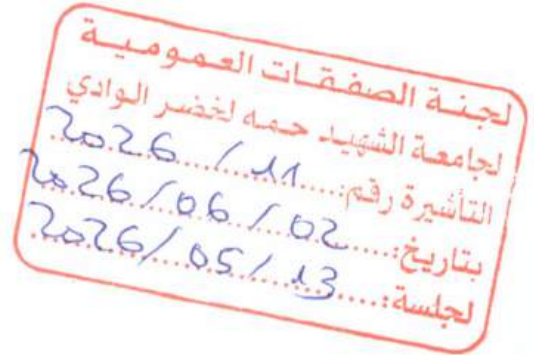 لجنة الصفقات العمومية
لجامعة الشهيد حمه لخضر الوادي
التأشيرة رقم:.....11 / 2026
بتاريخ:.....02 / 06 / 2026
لجلسة:.....13 / 05 / 2026